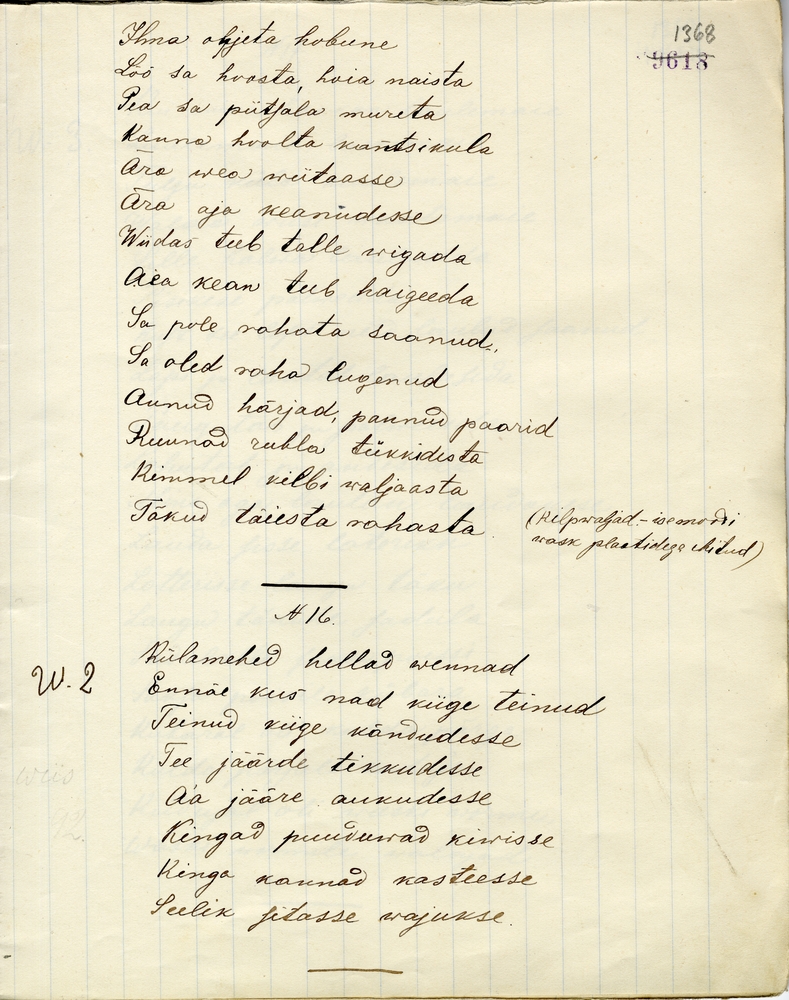 1368
9618
Ilma ohjeta hobune
Löö sa hoosta, hoia naista
Pea sa piitsala mureta
Kanna hoolta kantsikula
Ära wea wiitaasse
Ära aja keanudesse
Wiidas teeb talle wigada
Aea kean teeb haigeeda
Sa pole rahata saanud.,
Sa oled raha lugenud
Aunud härjad, pannud paarid
Ruunad rubla tükkidesta
Kimmel kilbi waljaasta
Täkud täiesta rahasta
(Kilpwaljad – isemoodi
wask plaatidega ehitud)
N 16.
W. 2
Külamehed hellad wennad
Ennäe kus nad kiige teinud
Teinud kiige kändudesse
Tee jäärde tikkudesse
A'a jääre aukudesse
Kingad puuduwad kiwisse
Kinga kannad kasteesse
Seelik sitasse wajukse.
wiis
92.